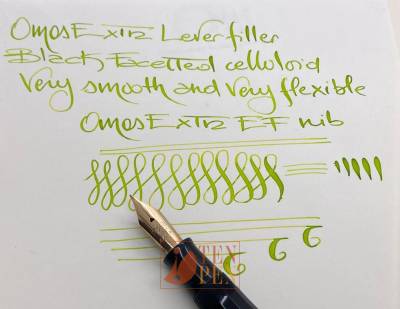 Omas Extra Lever filler
Black Facetted celluloid
Very smooth and very flexible
Omas Extra EF nib
TEN
PEN